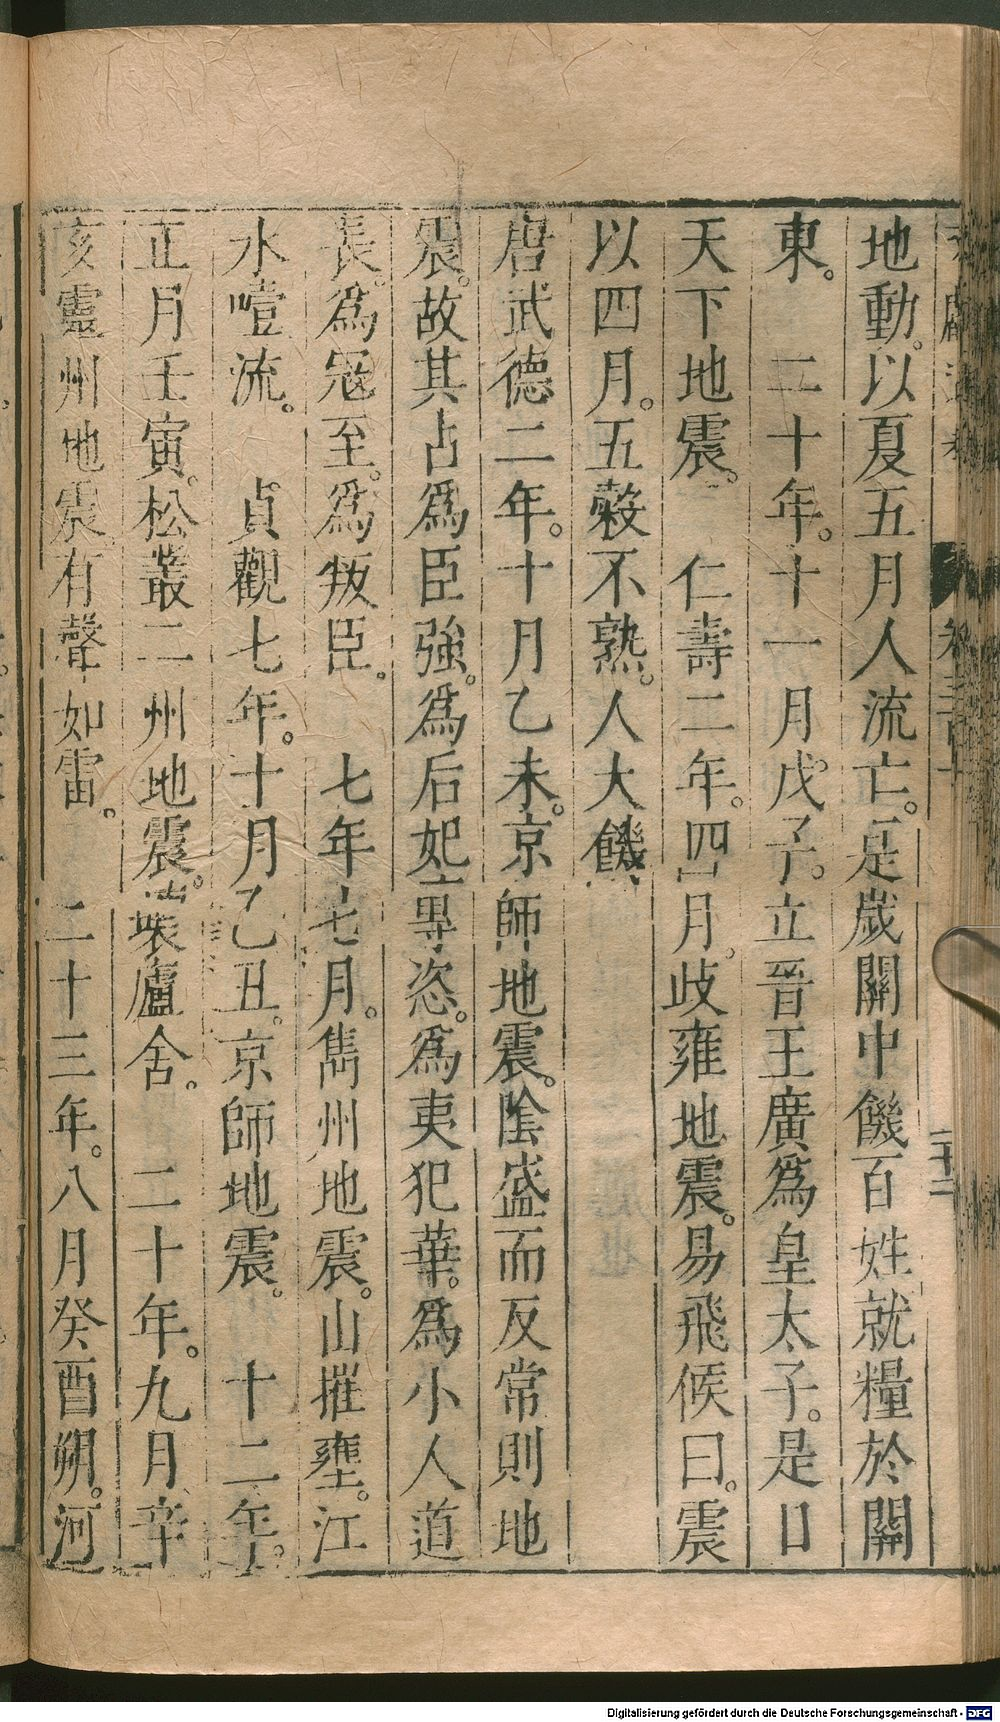 地動。以夏五月人流亡。是歲關中饑百姓就糧於關
東。　二十年。十一月戊子。立晉王廣爲皇太子。是日
天下地震。　仁壽二年。四月。歧雍地震。易飛候曰。震
以四月。五穀不熟。人大饑
唐武德二年。十月乙未。京師地震。陰盛而反常則地
震。故其占爲臣強。爲后妃專恣。爲夷犯華。爲小人道
長。爲寇至。爲叛臣。　七年七月。雋州地震。山摧壅。江
水噎流。　貞觀七年。十月乙丑。京師地震。　十二年。
正月壬寅。松叢二州地震。壞廬舍。　二十年。九月辛
亥靈州地震有聲如雷。　二十三年。八月癸酉朔。河
二十二
Digitalisierung gefördert durch die Deutsche Forschungsgemeinschaft - DFG